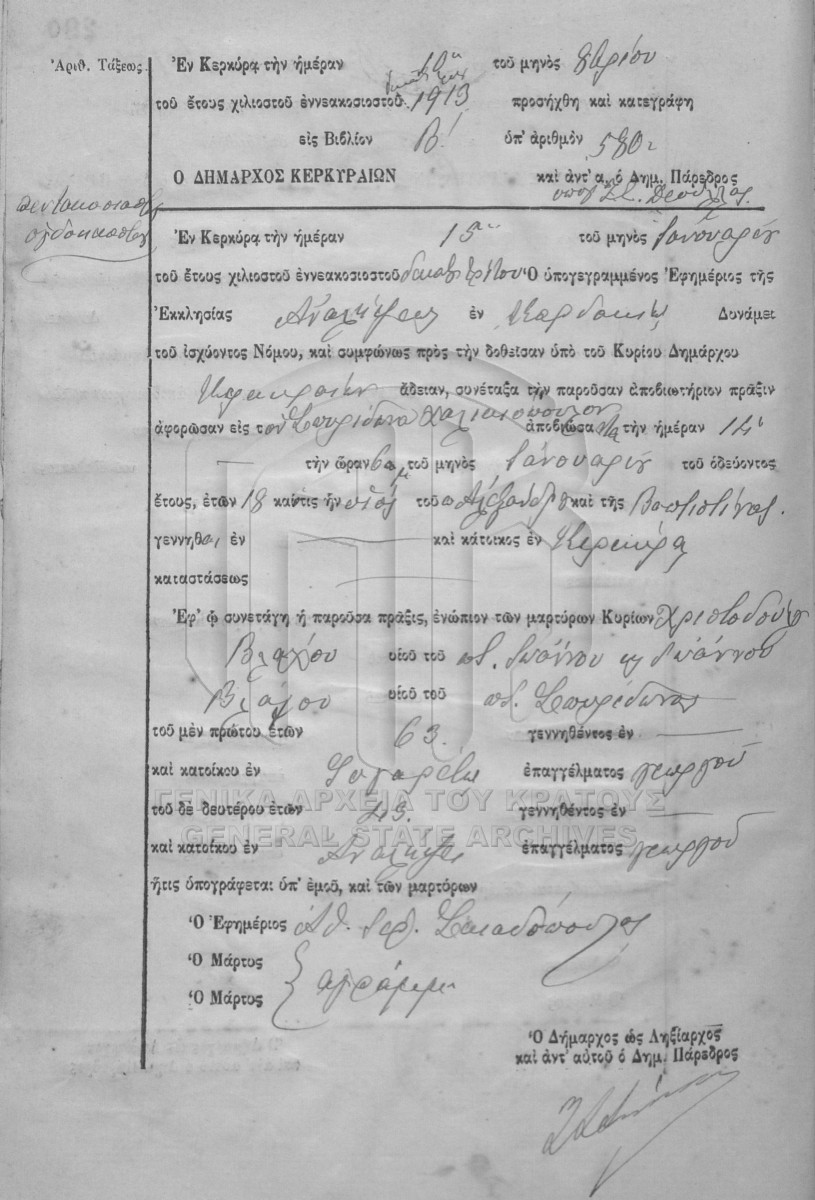 Ἀριθ. Τάξεως.
Ἐν Κερκύρᾳ τὴν ἡμέραν τοῦ μηνὸς 8βρίου
τοῦ ἔτους χιλιοστοῦ ἐννεακοσιοστοῦ 1913 προσήχθη καὶ κατεγράφη
εἰς Βιβλίον Β! ὑπ' ἀριθμὸν 580
Ὁ ΔΗΜΑΡΧΟΣ ΚΕΡΚΥΡΑΙΩΝ καὶ ἀντ' α. ὁ Δημ. Πάρεδρος
Ἐν Κερκύρᾳ τὴν ἡμέραν 15 τοῦ μηνὸς Ἰανουαρίου
τοῦ ἔτους χιλιοστοῦ ἐννεακοσιοστοῦ δεκάτου τρίτου Ὁ ὑπογεγραμμένος Ἐφημέριος τῆς
Ἐκκλησίας Ἀναλήψεως ἐν Δυνάμει
τοῦ ἰσχύοντος Νόμου, καὶ συμφώνως πρὸς τὴν δοθεῖσαν ὑπὸ τοῦ Κυρίου Δημάρχου
Κερκυραίων ἄδειαν, συνέταξα τὴν παροῦσαν ἀποβιωτήριον πρᾶξιν
ἀφορῶσαν εἰς τὸν Σπυρίδωνα Χαλικιόπουλον ἀποβιώσαντα τὴν ἡμέραν 14
τὴν ὥραν 6 μμ τοῦ μηνὸς Ἰανουαρίου τοῦ ὁδεύοντος
ἔτους, ἐτῶν 18 καὶ τις ἦν υἱὸς τοῦ Ἀλεξάνδρου καὶ τῆς
γεννηθεὶς ἐν καὶ κάτοικος ἐν Κερκύρᾳ
καταστάσεως
Ἐφ' ᾧ συνετάγη ἡ παροῦσα πρᾶξις, ἐνώπιον τῶν μαρτύρων Κυρίων Χριστοδούλου
Βλάχου υἱοῦ τοῦ ποτ. Ἰωάννου καὶ Ἰωάννου
υἱοῦ τοῦ ποτ. Σπυρίδωνος
τοῦ μὲν πρώτου ἐτῶν 63. γεννηθέντος ἐν
καὶ κατοίκου ἐν ἐπαγγέλματος γεωργοῦ
ΓΕΝΙΚΑ ΑΡΧΕΙΑ ΤΟΥ ΚΡΑΤΟΥΣ
τοῦ δὲ δευτέρου ἐτῶν γεννηθέντος ἐν
GENERAL STATE ARCHIVES
καὶ κατοίκου ἐν Ἀναλήψει ἐπαγγέλματος γεωργοῦ
ἥτις ὑπογράφεται ὑπ' ἐμοῦ, καὶ τῶν μαρτύρων
Ὁ Ἐφημέριος
Ὁ Μάρτυς
Ὁ Μάρτυς ἀγράμματοι
Ὁ Δήμαρχος ὡς Ληξίαρχος
καὶ ἀντ' αὐτοῦ ὁ Δημ. Πάρεδρος